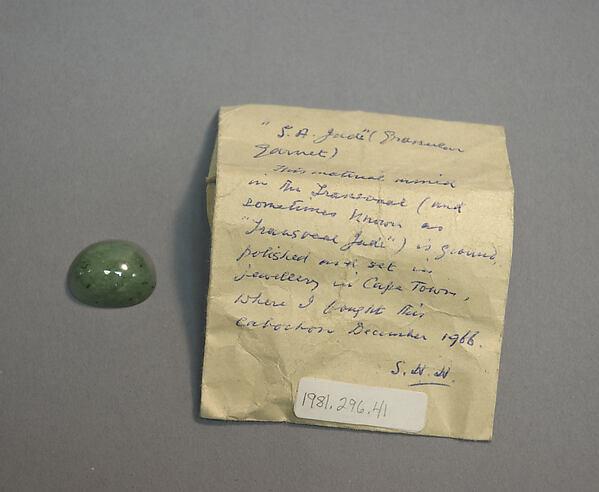 "S.A. Jade" (Grossular
Garnet)
This material mined
in the Transvaal (and
sometimes known as
"Transvaal Jade") is ground,
polished and set in
jewellery in Cape Town,
where I bought this
cabochon December 1966.
S.H.H.
1981.296.41